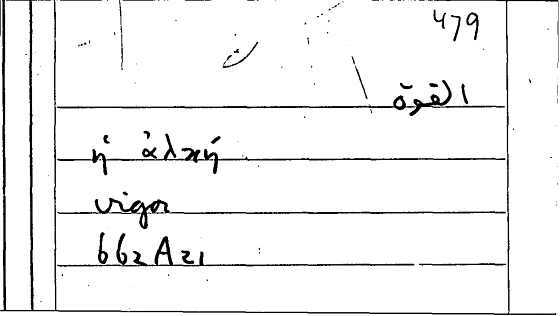 479
القوة
ἡ ἀλκή
vigor
662 A 21